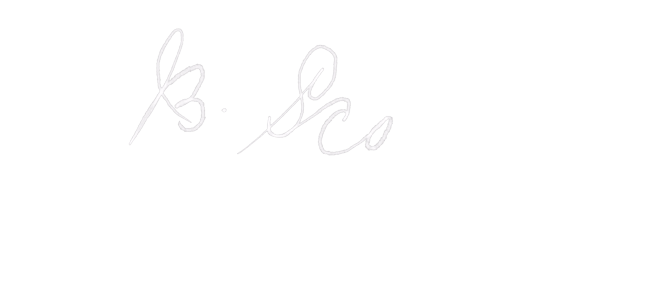 B. Sco